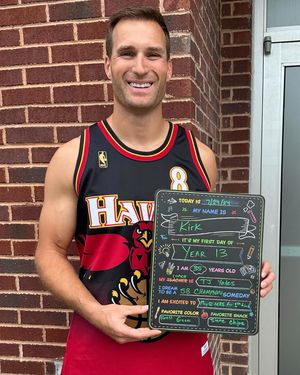 TODAY IS 7/24/24
MY NAME IS
Kirk
IT'S MY FIRST DAY OF
YEAR 13
I AM 35 YEARS OLD
MY TEACHER IS TJ Yates
COACH
I DREAM TO BE A SB CHAMPION SOMEDAY
I AM EXCITED TO
FAVORITE COLOR
FAVORITE SNACK
Green
Kale Chips
HAW
8